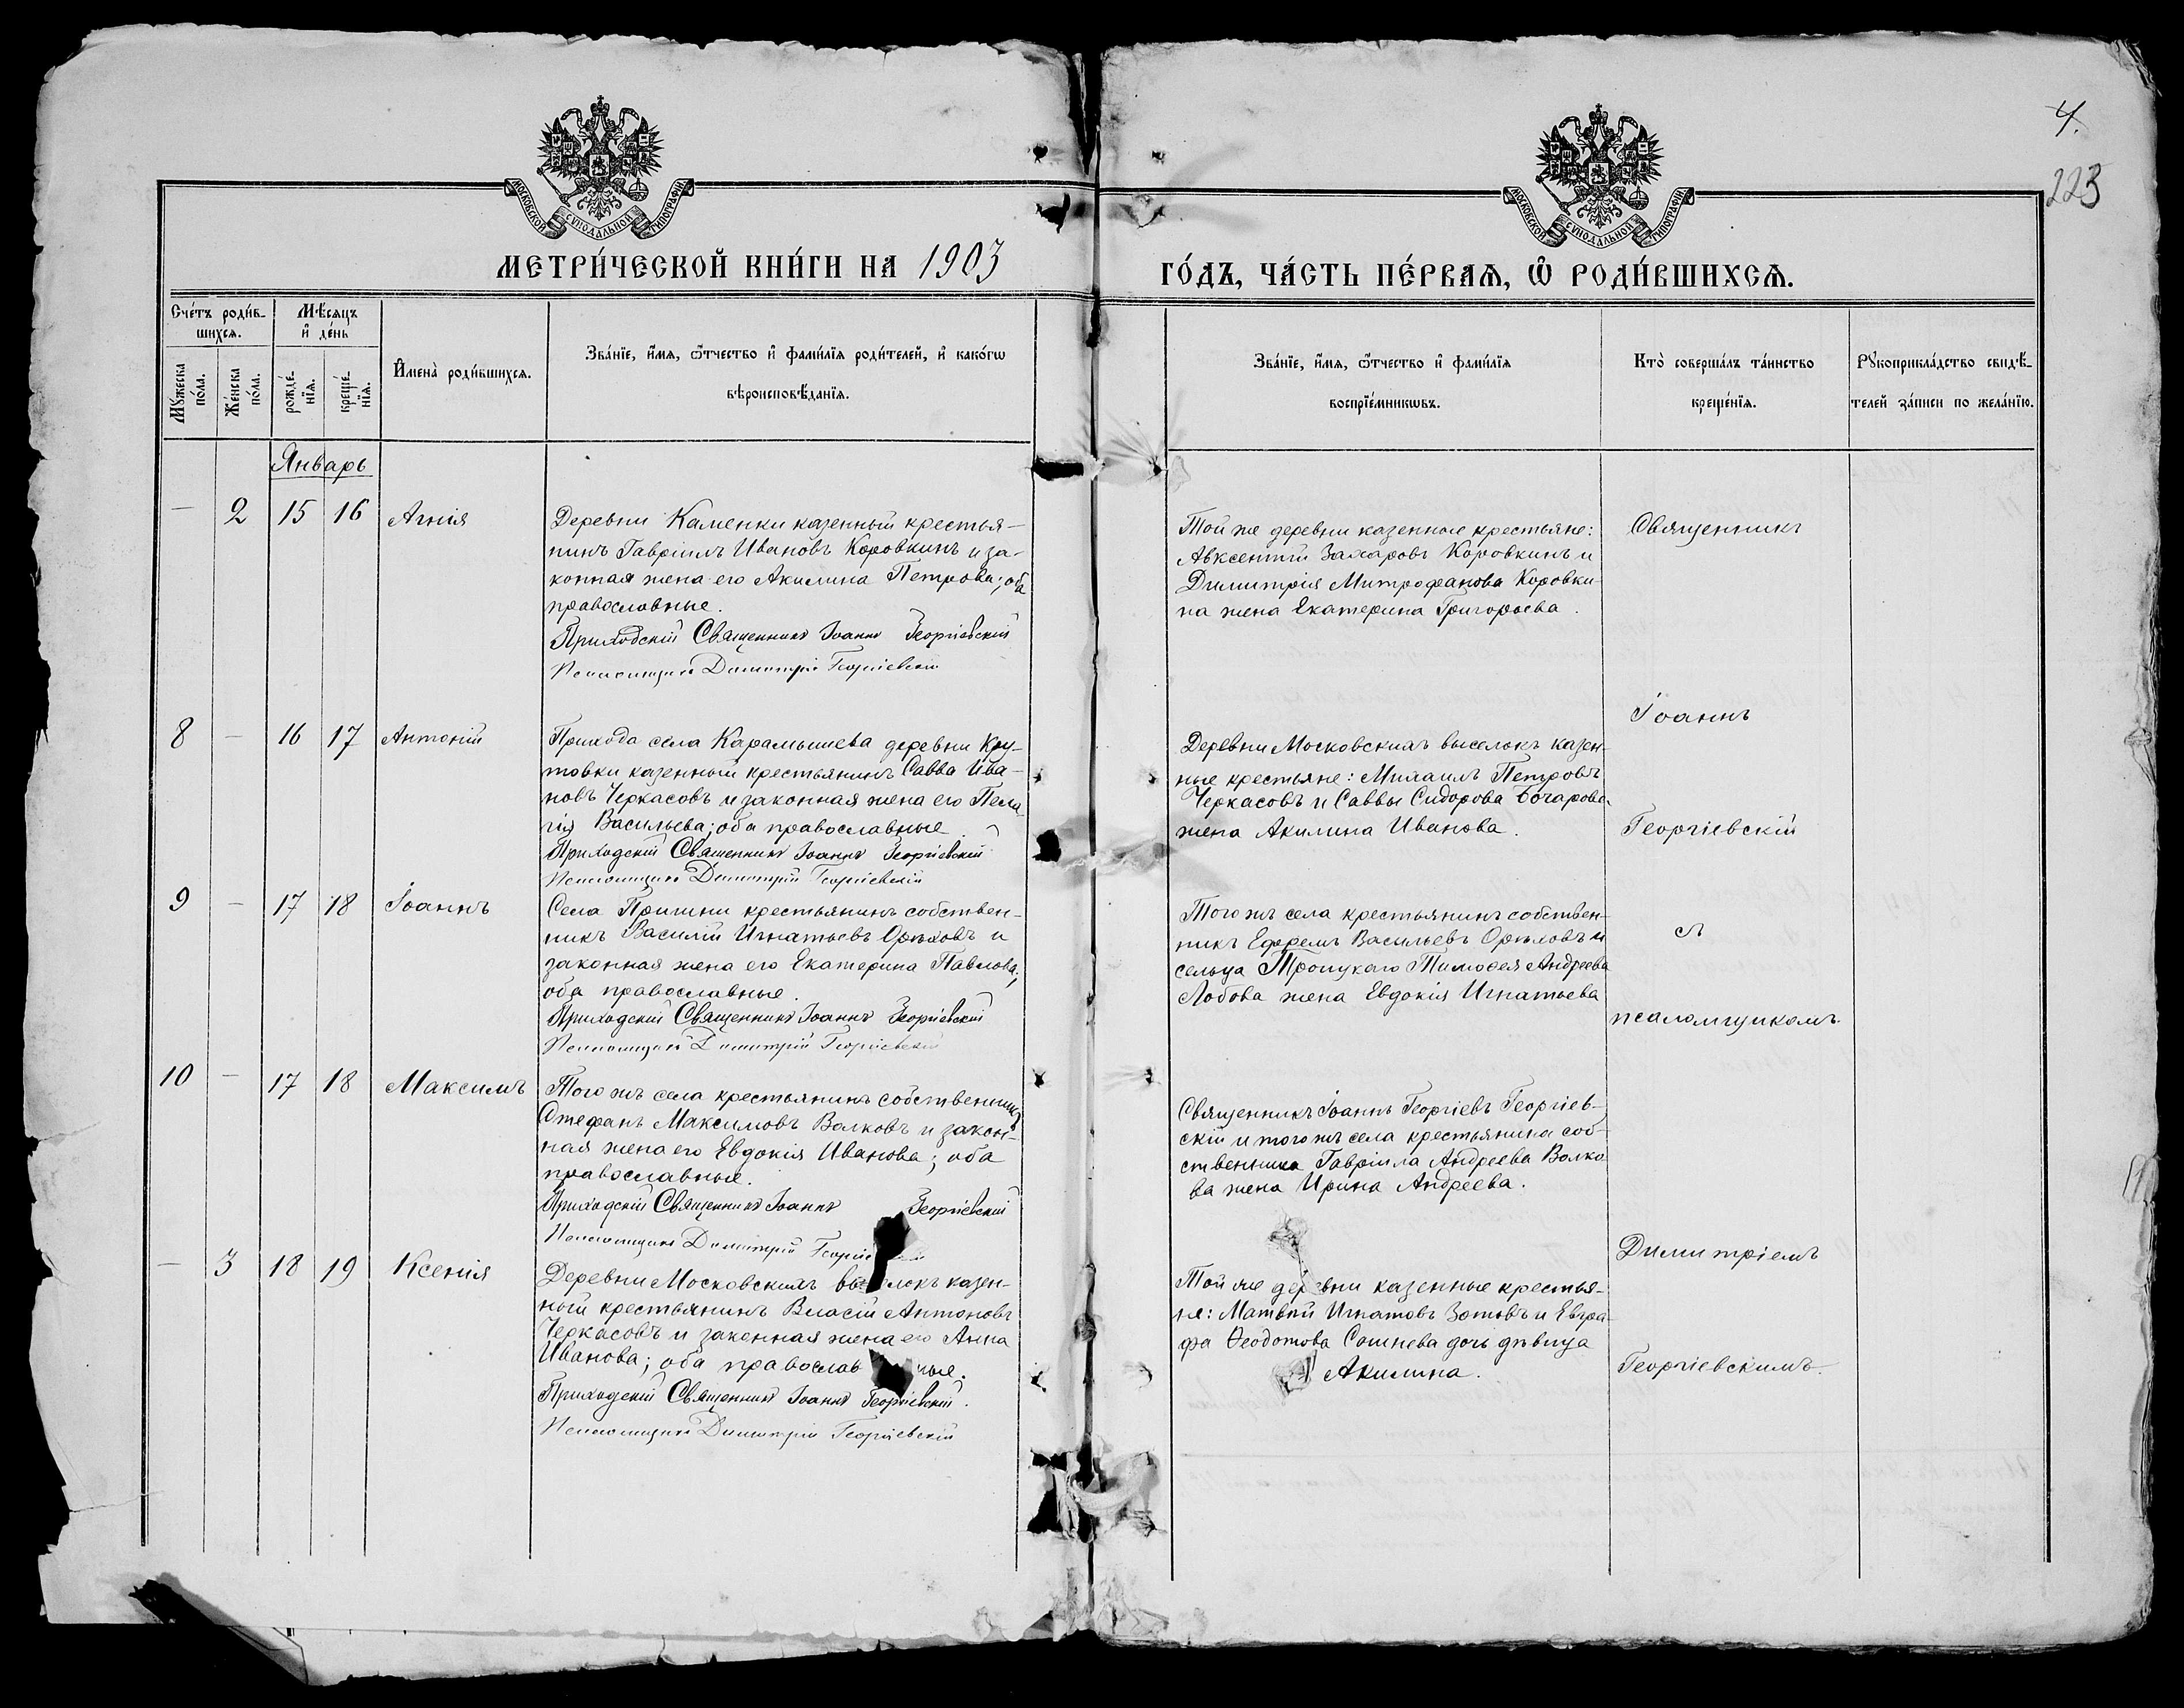 4.
223
МОСКОВСКОЙ СѴНОДАЛЬНОЙ ТИПОГРАФІИ
МОСКОВСКОЙ СѴНОДАЛЬНОЙ ТИПОГРАФІИ
МЕТРИ́ЧЕСКОЙ КНИ́ГИ НА 1903
ГО́ДЪ, ЧА́СТЬ ПЕ́РВАѦ, Ѡ҆ РОДИ́ВШИХСѦ.
Сче́тъ роди́в-
шихсѧ.
Мѣ́сѧцъ
и҆ де́нь
Мꙋ́жеска
по́ла.
Же́нска
по́ла.
рожде́-
нїѧ.
креще́-
нїѧ.
И҆мена̀ роди́вшихсѧ.
Зва́нїе, и҆́мѧ, ѻ҆́тчество и҆ фами́лїѧ роди́телей, и҆ како́гѡ
вѣроисповѣ́данїѧ.
Зва́нїе, и҆́мѧ, ѻ҆́тчество и҆ фами́лїѧ
воспрїе́мникѡвъ.
Кто̀ соверша́лъ та́инство
креще́нїѧ.
Рꙋкоприкла́дство свидѣ́-
телей за́писи по жела́нїю.
Январь
— 2 15 16 Агнія
Деревни Каменки казенный крестья-
нинъ Гавріилъ Ивановъ Коровкинъ и за-
конная жена его Акилина Петрова; оба
православные.
Приходскій Священникъ Іоаннъ Георгіевскій
Псаломщикъ Димитрій Георгіевскій
Той же деревни казенные крестьяне:
Авксентій Захаровъ Коровкинъ и
Димитрія Митрофанова Коровки-
на жена Екатерина Григорьева.
Священникъ
8 — 16 17 Антоній
Прихода села Карамышева деревни Кру-
товки казенный крестьянинъ Савва Ива-
новъ Черкасовъ и законная жена его Пела
гія Васильева; оба православные.
Приходскій Священникъ Іоаннъ Георгіевскій
Псаломщикъ Димитрій Георгіевскій
Деревни Московскихъ выселокъ казен-
ные крестьяне: Михаилъ Петровъ
Черкасовъ и Саввы Сидорова Бочарова
жена Акилина Иванова.
Іоаннъ
Георгіевскій
9 — 17 18 Іоаннъ
Села крестьянинъ собствен-
никъ Василій Игнатьевъ Орѣховъ и
законная жена его Екатерина Павлова;
оба православные.
Приходскій Священникъ Іоаннъ Георгіевскій
Псаломщикъ Димитрій Георгіевскій
Того жъ села крестьянинъ собствен-
никъ Ефремъ Васильевъ Орѣховъ и
сельца Троицкаго Тимоѳея Андреева
Лобова жена Евдокія Игнатьева
съ
псаломщикомъ
10 — 17 18 Максимъ
Того жъ села крестьянинъ собственникъ
Стефанъ Максимовъ Волковъ и закон-
ная жена его Евдокія Иванова; оба
православные.
Приходскій Священникъ Іоаннъ Георгіевскій
Псаломщикъ Димитрій
Священникъ Іоаннъ Георгіевъ Георгіев-
скій и того жъ села крестьянина соб-
ственника Гавріила Андреева Волко
ва жена Ирина Андреева.
Димитріемъ
— 3 18 19 Ксенія
Деревни Московскихъ вы локъ казен-
ной крестьянинъ Власій Антоновъ
Черкасовъ и законная жена его Анна
Иванова; оба православ ные.
Приходскій Священникъ Іоаннъ Георгіевскій.
Псаломщикъ Димитрій Георгіевскій
Той же деревни казенные крестья-
не: Матвѣй Игнатовъ Зотовъ и Евгра-
фа Ѳеодотова Сошнева дочь дѣвица
Акилина.
Георгіевскимъ.